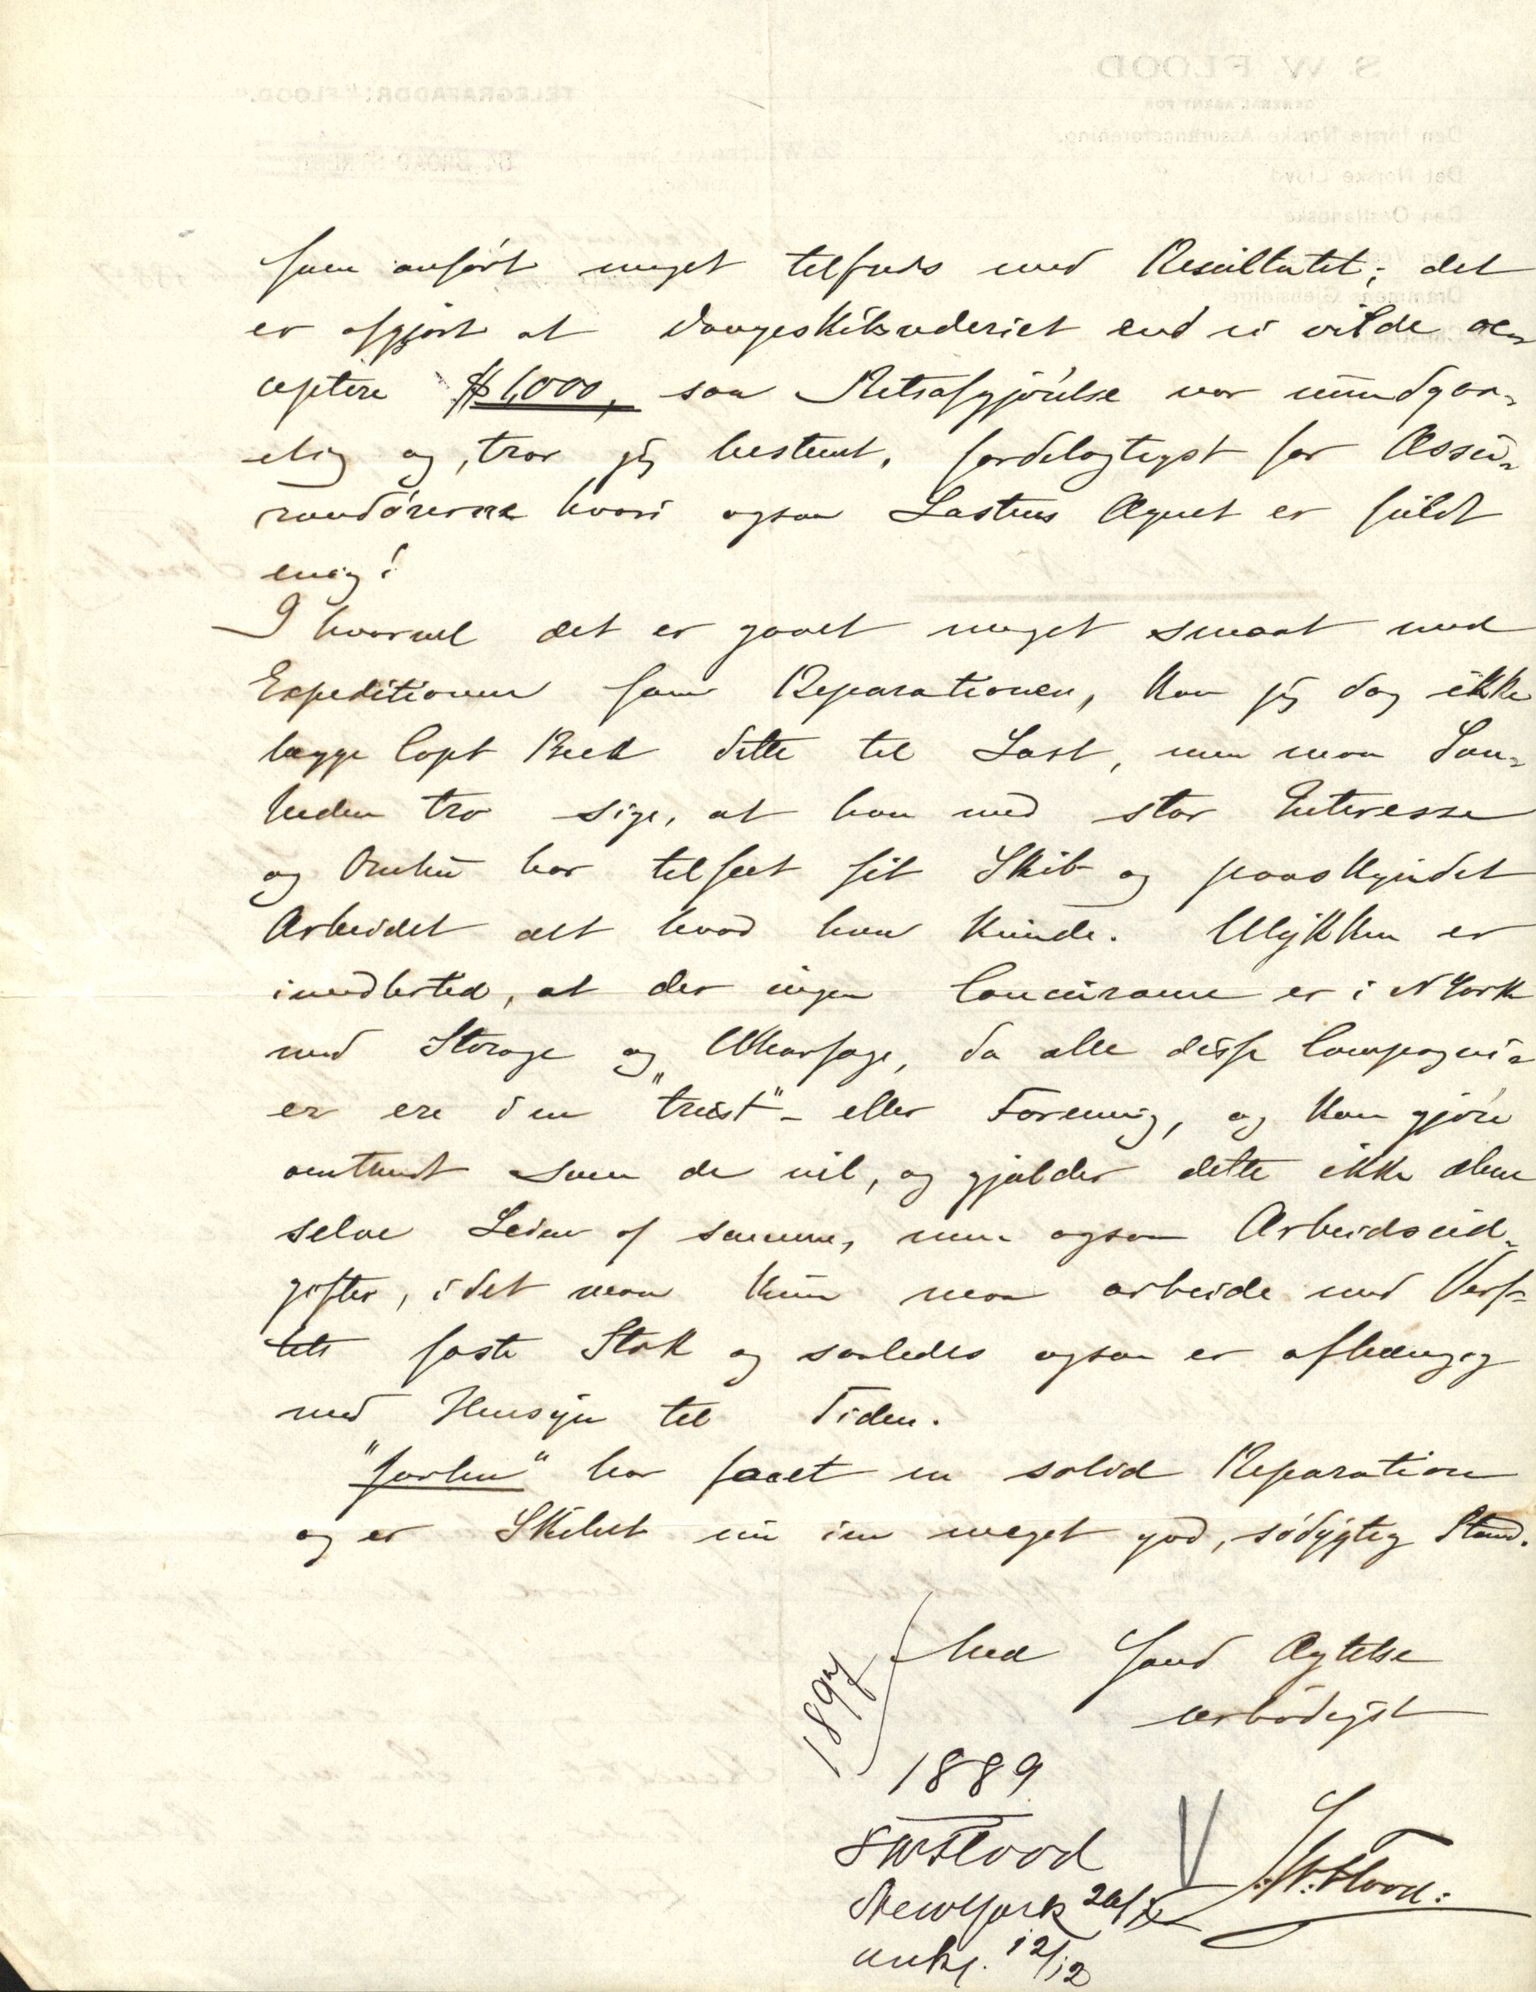 som anført meget tilfreds med Resultatet; det
er afgjort at vi vilde ac-
ceptere $1,000, saa Retsafgjørelse var undgaa-
elig og, tror jeg bestemt, fordelagtigst for Assu-
randørerne hvori ogsaa Lastens Agent er fuldt
enig!
I hvorvel det er gaaet meget smaat med
Expeditionen som Reparationen, kan jeg dog ikke
lægge Capt Beck dette til Last, men maa San-
heden tro sige, at han med stor Interesse
og Omhu har tilseet sit Skib og paaskyndet
Arbeidet alt hvad han kunde. Ulykken er
imidlertid, at der ingen Concurance er i N York
med Storage og Wharfage, da alle disse Compagnie
er ere i en "trust" - eller Forening, og kan gjøre
omtrent som de vil, og gjælder dette ikke alene
selve Leien af samme, men ogsaa Arbeidsud-
gifter, idet man kun maa arbeide med Verf-
tets faste Stok og saaledes ogsaa er afhængig
med Hensyn til Tiden.
har faaet en solid Reparation
og er Skibet nu i en meget god, sødygtig Stand.
Med sand Agtelse
ærbødigst
S. W. Flood.
1897
1889
S W Flood
New York 26/
ank. 12/12
S W FLOOD
GENERAL AGENT FOR
Den første Norske Assuranceforening.
Det Norske Lloyd
Den Oestlandske
TELEGRAFADDR: "FLOOD."